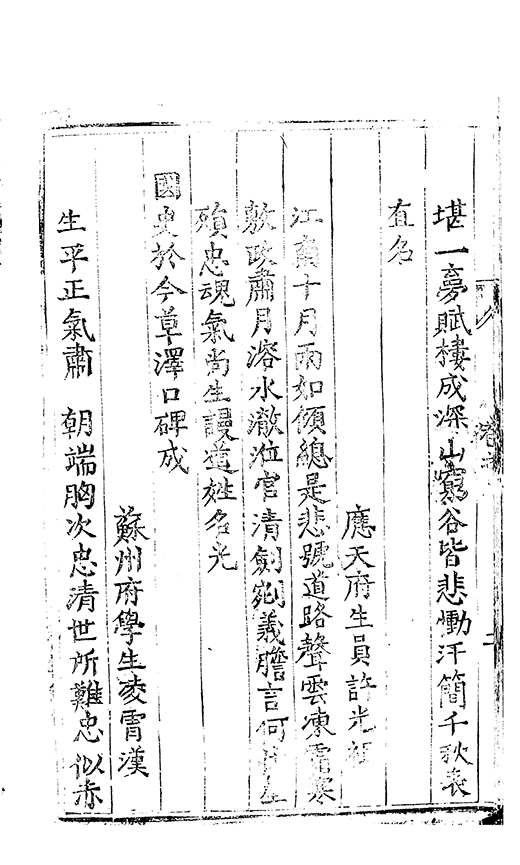 堪一夢賦樓成深山窮谷皆悲慟汗簡千秋表
直名
應天府生員許光
江南十月雨如傾總是悲號道路聲雲凍霜寒
敷政肅月溶水澈涖官清劍剜義膽言何
殞忠魂氣尚生謾道姓名光
國史於今草澤口碑成
蘇州府學生凌霄漢
生平正氣肅 朝端胸次忠清世所難忠似赤